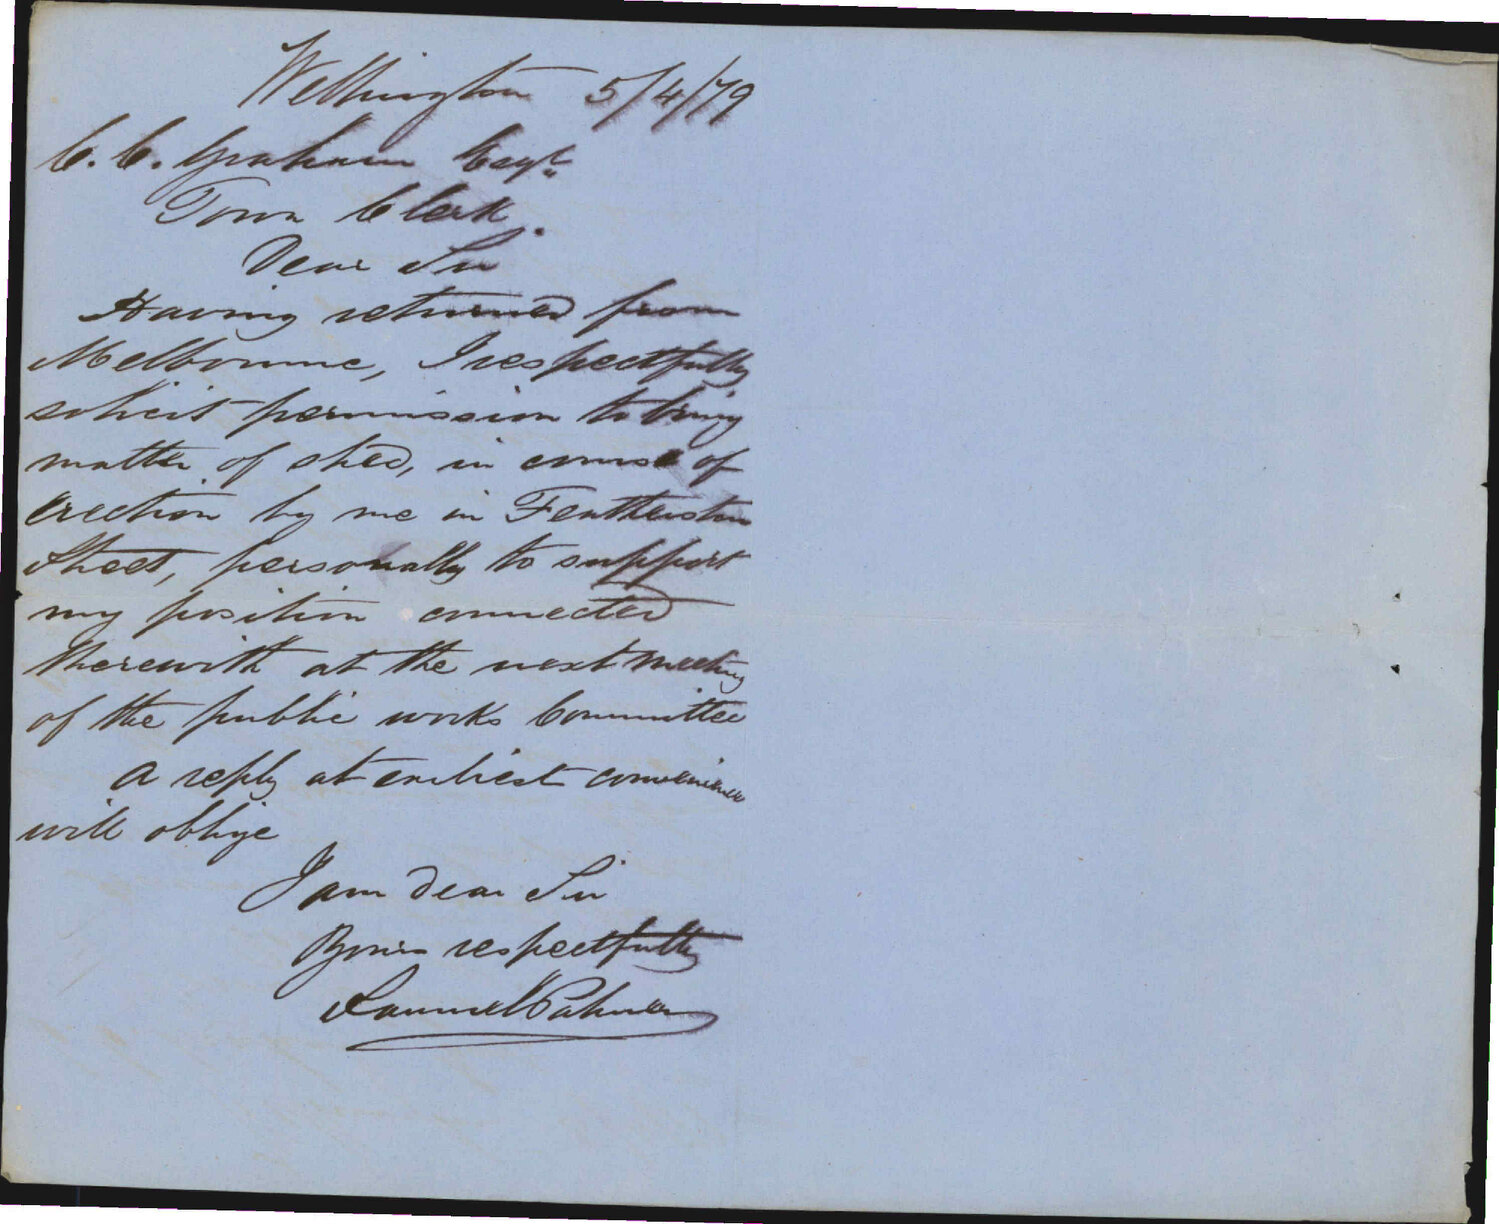 Wellington 5/4/79
C. C. Graham Esqr.
Town Clerk.
Dear Sir
Having returned from
Melbourne, I respectfully
solicit permission to bring
matter of shed, in course of
erection by me in Featherston
Street, personally to support
my position connected
therewith at the next meeting
of the public works Committee
A reply at earliest convenience
will oblige
I am dear Sir
Yours respectfully
Samuel Palmer